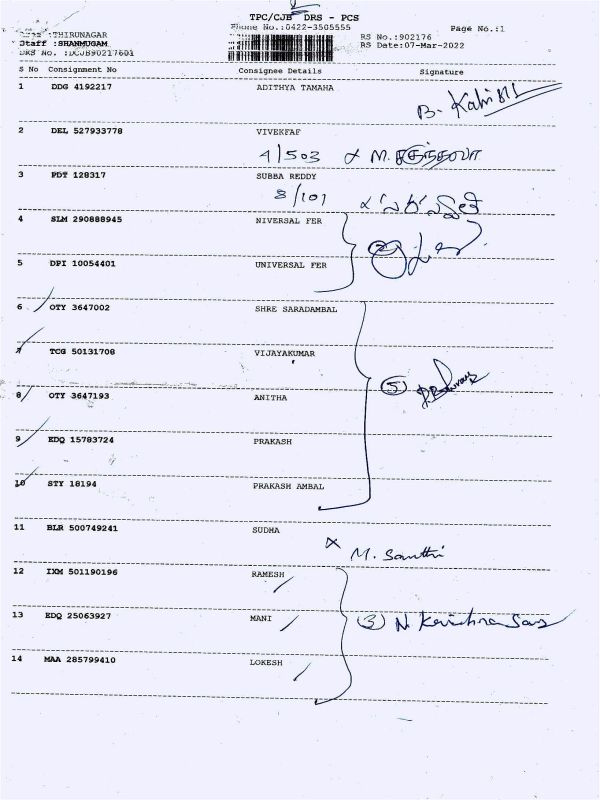 TPC/CJB DRS - PCS
Phone No.:0422-3505555 Page No.:1
THIRUNAGAR RS No.:902176
Staff :SHANMUGAM RS Date:07-Mar-2022
DRS No. :DCJB90217601
S No Consignment No Consignee Details Signature
1 DDG 4192217 ADITHYA TAMAHA
B.
2 DEL 527933778 VIVEKFAF
4/503 M.
3 PDT 128317 SUBBA REDDY
8/101
4 SLM 290888945 NIVERSAL FER
5 DPI 10054401 UNIVERSAL FER
6 OTY 3647002 SHRE SARADAMBAL
7 TCG 50131708 VIJAYAKUMAR
5
8 OTY 3647193 ANITHA
9 EDQ 15783724 PRAKASH
10 STY 18194 PRAKASH AMBAL
11 BLR 500749241 SUDHA
M. Santhi
12 IXM 501190196 RAMESH
13 EDQ 25063927 MANI 3 N.
14 MAA 285799410 LOKESH